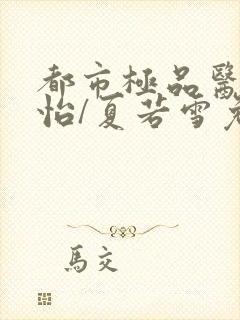 都市極品醫
怡/夏若雪
馬交